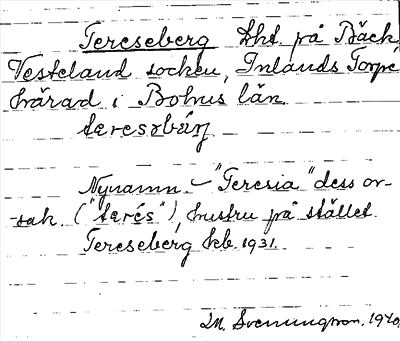 Tereseberg Lht. på Bäck,
Västerland socken, Inlands Torpe
härad i Bohus län.
teresəbærj
Nynamn. "Teresia" dess or-
sak. ("terés"), hustru på stället.
Tereseberg kb. 1931.
M. Svenungsson. 1940.